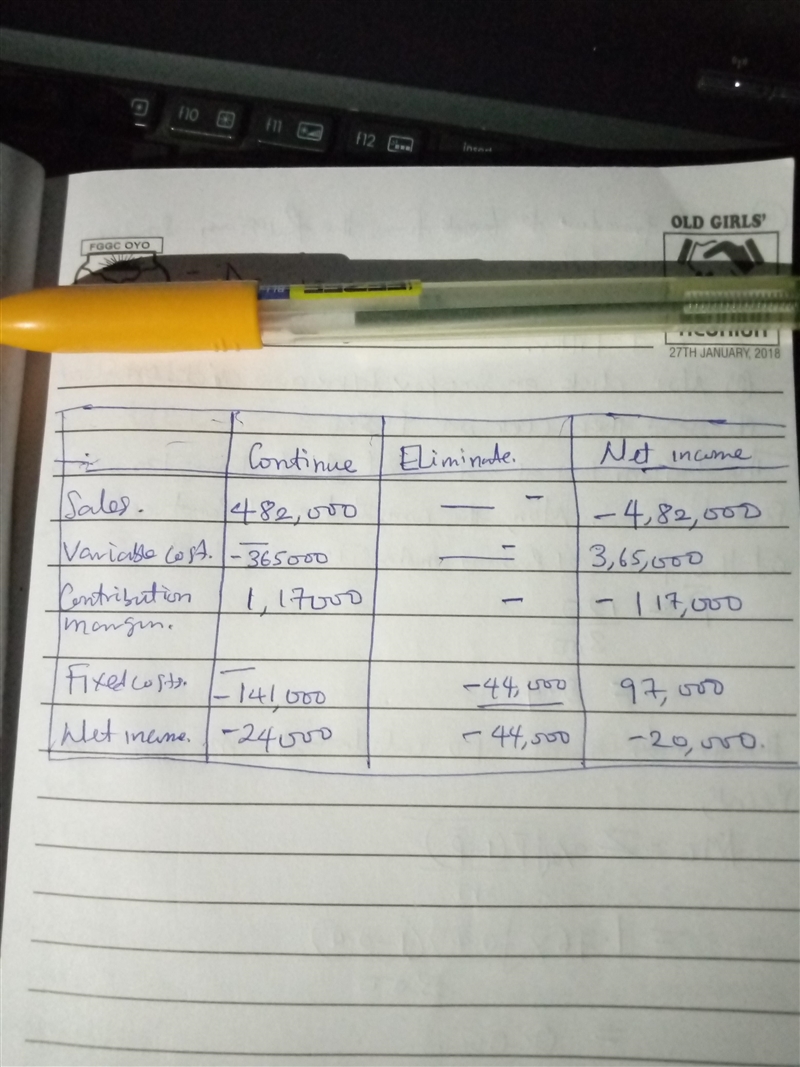 f10
f11
f12
insert
FGGC OYO
OLD GIRLS'
REUNION
27TH JANUARY, 2018
Continue Eliminate. Net income
Sales. 482,000 — - -4,82,000
Variable cost. -365000 — = 3,65,000
Contribution 1,17000 - -117,000
margin.
Fixed costs. -141,000 -44,000 97,000
Net income. -24000 -44,000 -20,000.